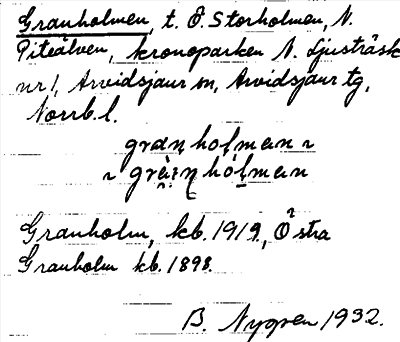 Granholmen, t. Ö. Storholmen, N.
Piteälven, kronoparken N. Ljusträsk
nr 1, Arvidsjaur sn, Arvidsjaur tg,
Norrb. l.
granholman
gràn hólman
Granholm, kb. 1919, Östra
Granholm kb. 1898.
B. Nygren 1932.